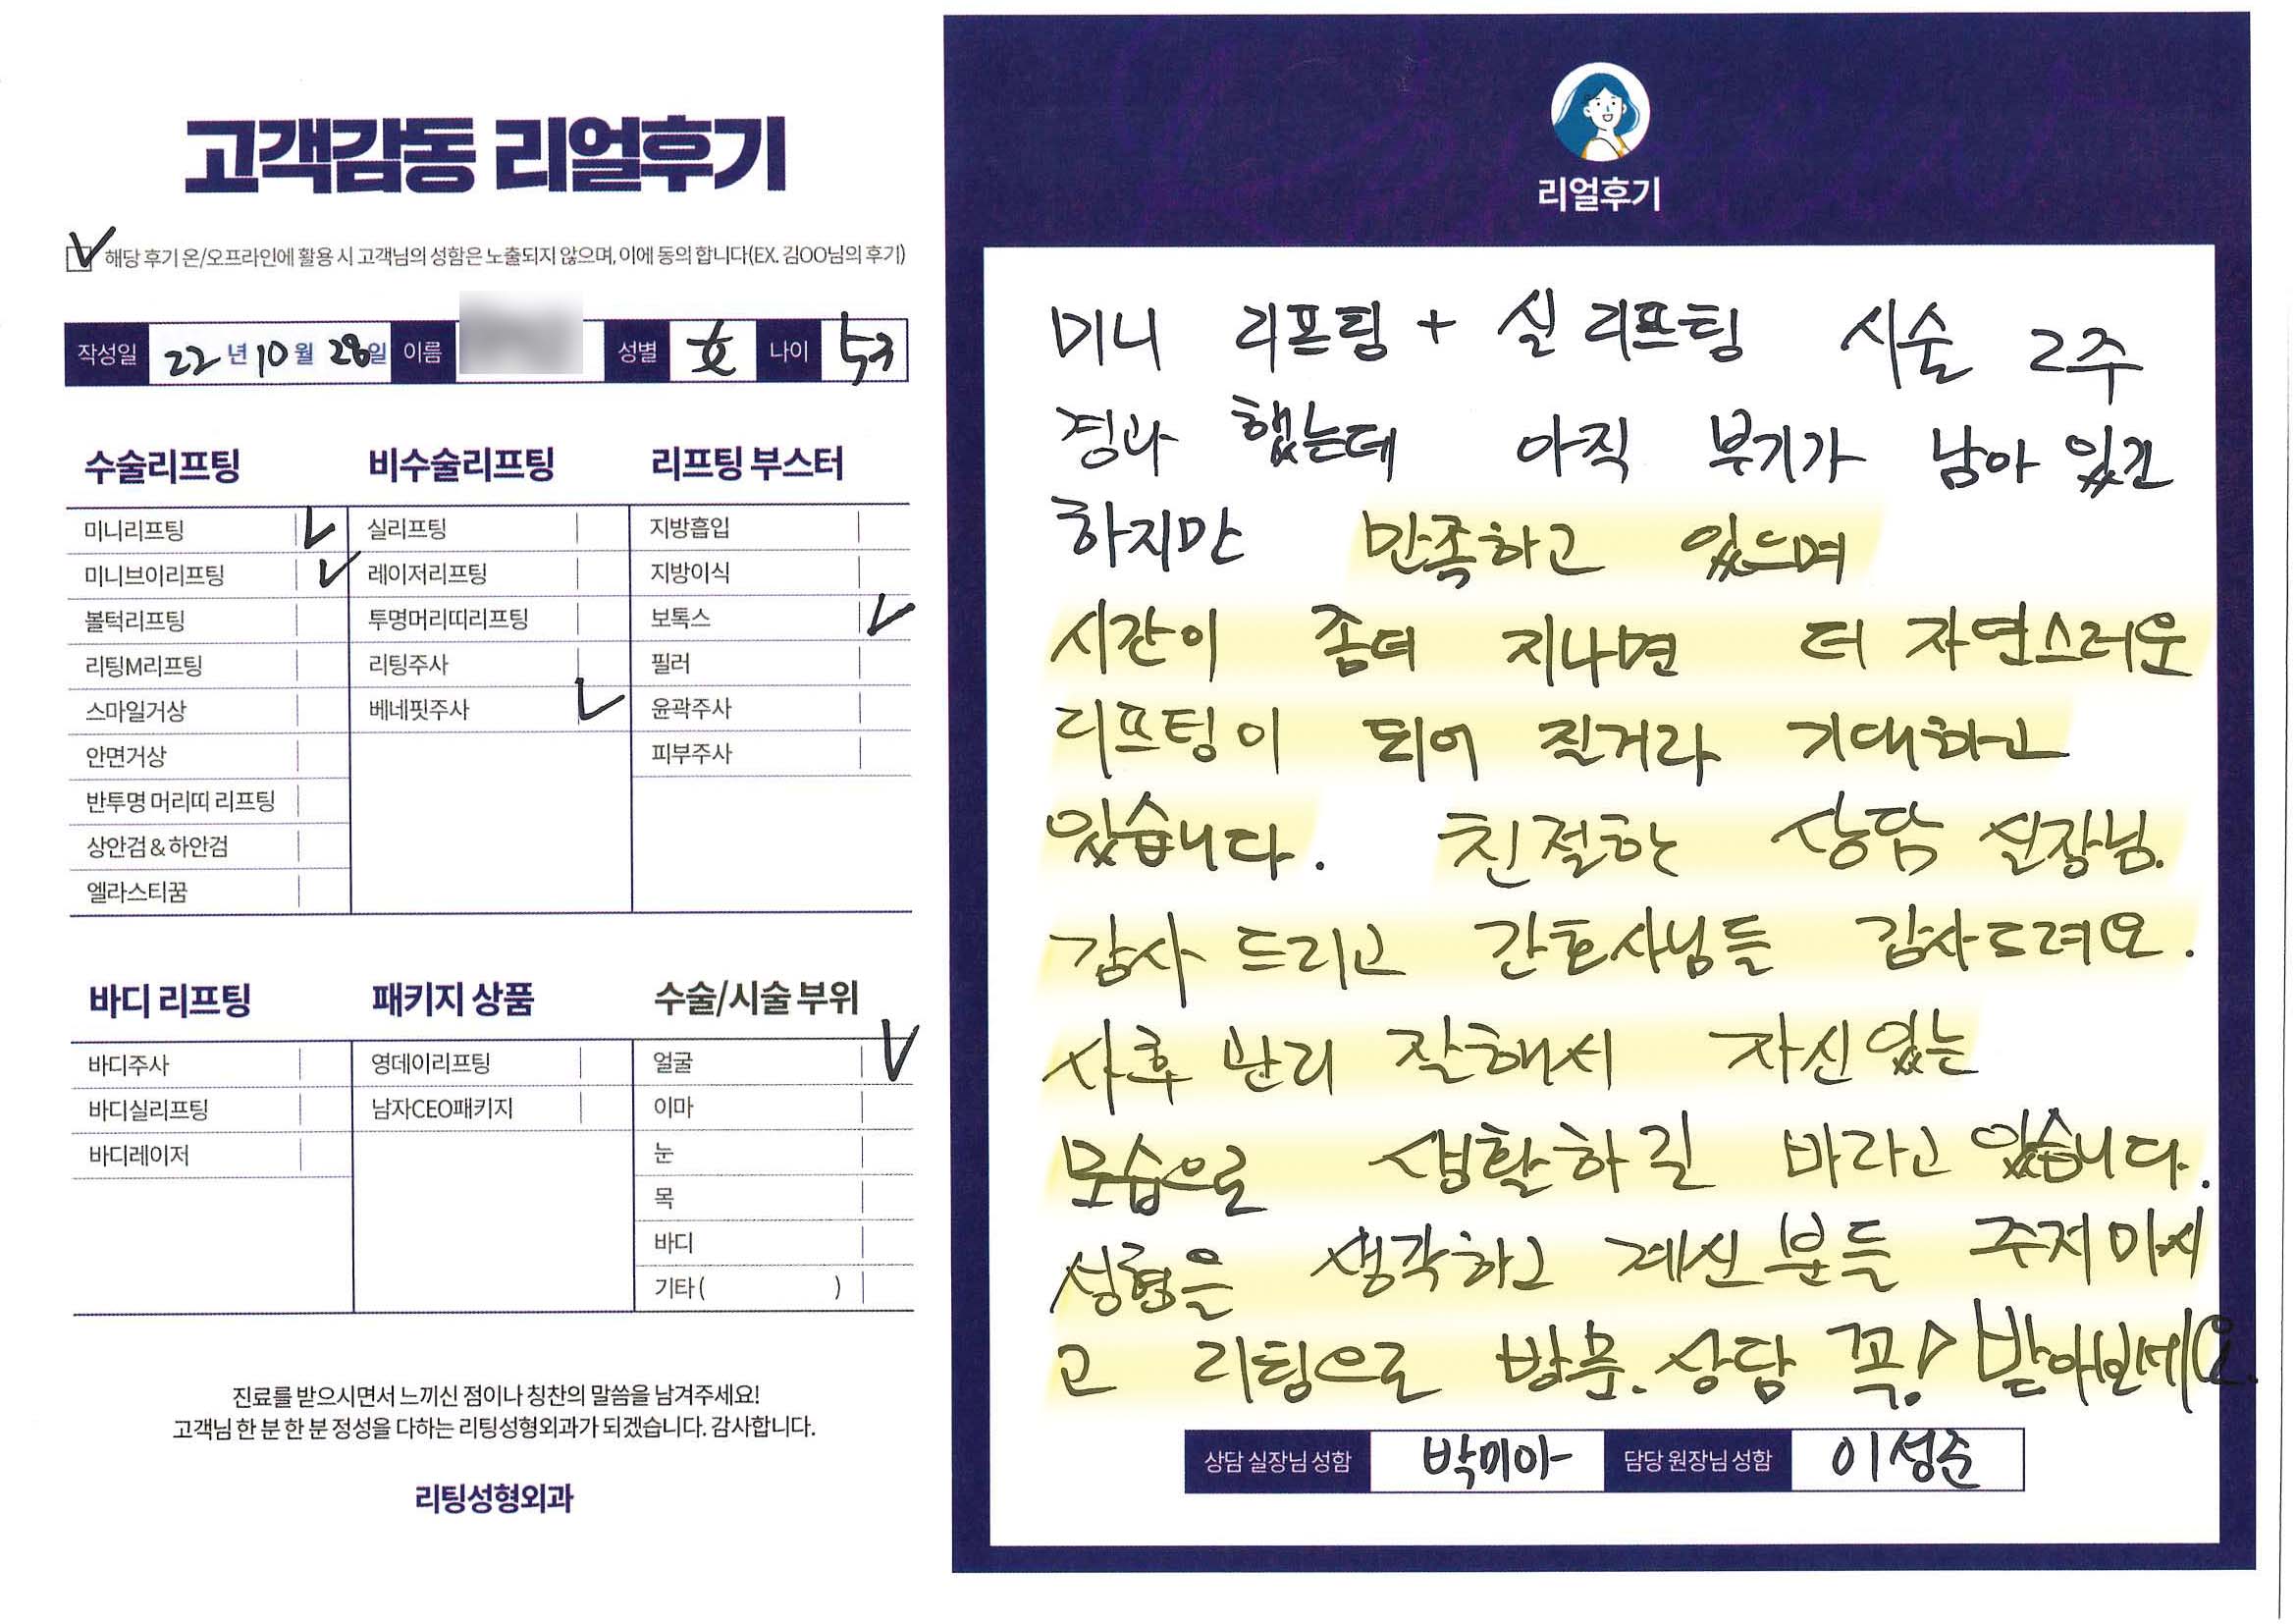 고객감동 리얼후기
해당 후기 온/오프라인에 활용 시 고객님의 성함은 노출되지 않으며, 이에 동의 합니다(EX. 김OO님의 후기)
작성일 22 년 10 월 28 일 이름 성별 女 나이 53
수술리프팅
미니리프팅
미니브이리프팅
볼턱리프팅
리팅M리프팅
스마일거상
안면거상
반투명 머리띠 리프팅
상안검 & 하안검
엘라스티꿈
비수술리프팅
실리프팅
레이저리프팅
투명머리띠리프팅
리팅주사
베네핏주사
리프팅 부스터
지방흡입
지방이식
보톡스
필러
윤곽주사
피부주사
바디 리프팅
바디주사
바디실리프팅
바디레이저
패키지 상품
영데이리프팅
남자CEO패키지
수술/시술 부위
얼굴
이마
눈
목
바디
기타 ( )
진료를 받으시면서 느끼신 점이나 칭찬의 말씀을 남겨주세요!
고객님 한 분 한 분 정성을 다하는 리팅성형외과가 되겠습니다. 감사합니다.
리팅성형외과
리얼후기
미니 리프팅 + 실 리프팅 시술 2주
경과 했는데 아직 부기가 남아 있긴
하지만 만족하고 있으며
시간이 좀더 지나면 더 자연스러운
리프팅이 되어 질거라 기대하고
있습니다. 친절한 상담 실장님.
감사 드리고 간호사님들 감사드려요.
사후 관리 잘해서 자신있는
모습으로 생활하길 바라고 있습니다.
성형을 생각하고 계신 분들 주저 마시
고 리팅으로 방문. 상담 꼭! 받아보세요.
상담 실장님 성함 박미아 담당 원장님 성함 이성준